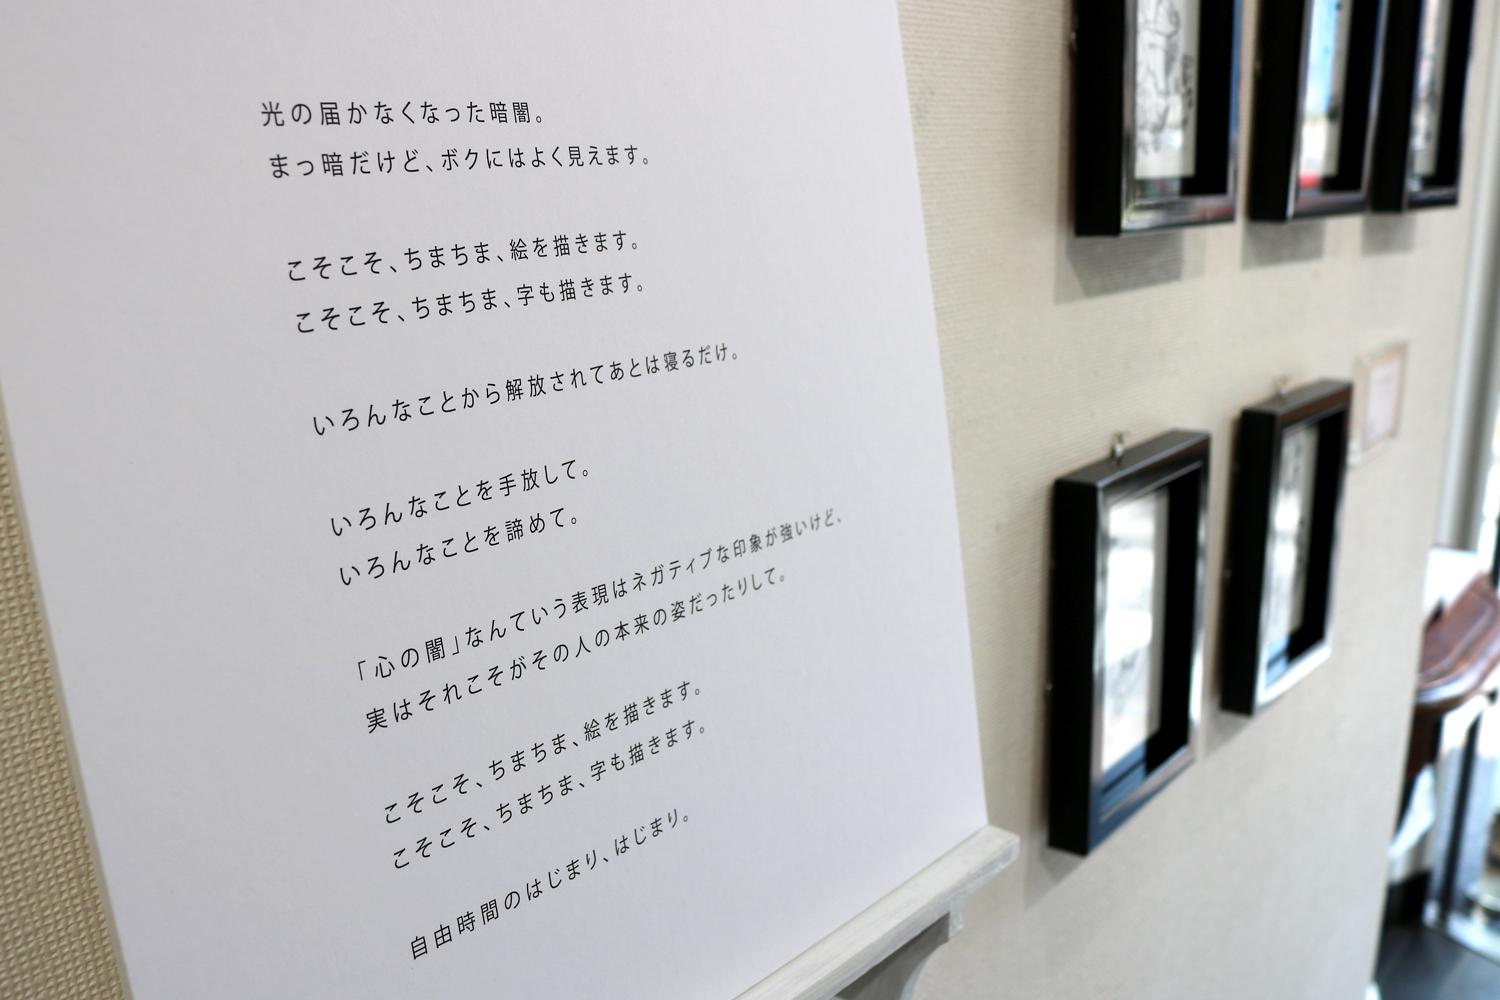 光の届かなくなった暗闇。
まっ暗だけど、ボクにはよく見えます。
こそこそ、ちまちま、絵を描きます。
こそこそ、ちまちま、字も描きます。
いろんなことから解放されてあとは寝るだけ。
いろんなことを手放して。
いろんなことを諦めて。
「心の闇」なんていう表現はネガティブな印象が強いけど、
実はそれこそがその人の本来の姿だったりして。
こそこそ、ちまちま、絵を描きます。
こそこそ、ちまちま、字も描きます。
自由時間のはじまり、はじまり。